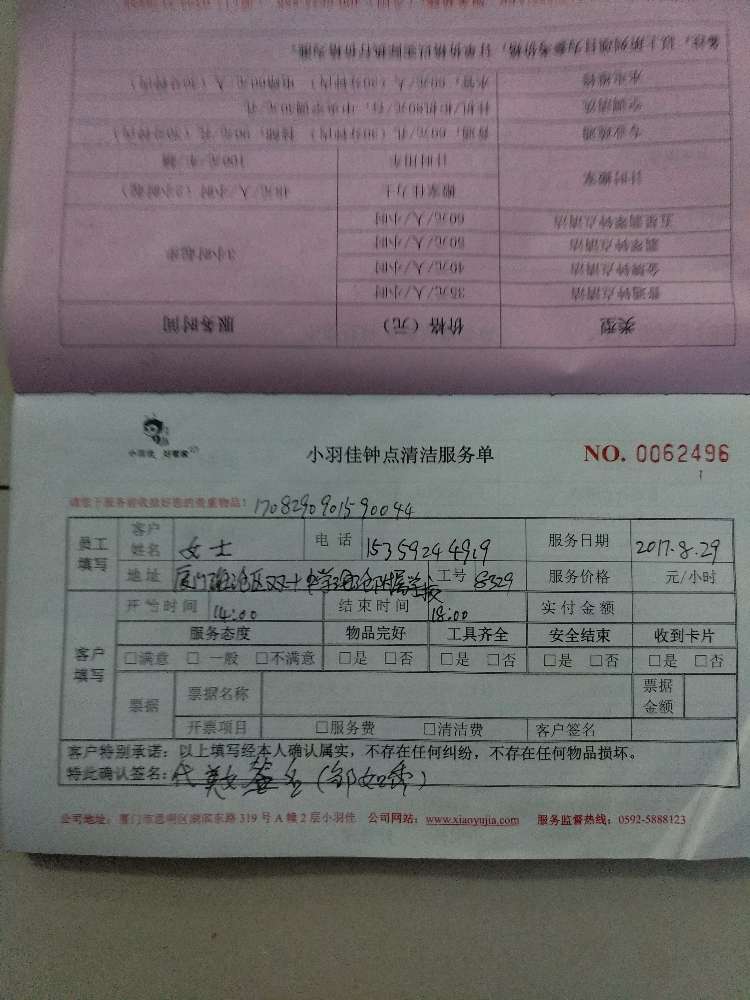 类型 价格（元） 服务时间
普通钟点清洁 35元/人/小时
金牌钟点清洁 40元/人/小时
翡翠钟点清洁 50元/人/小时
五星翡翠钟点清洁 60元/人/小时
3小时起步
计时搬家
搬家佳力士 48元/人/小时（2小时起）
计时用车 100元/车/趟
专业疏通 普通：60元/孔（30分钟内） 90元/孔（30分钟内）
空调清洗 挂机/柜机80元/台，中央空调30元/孔
水电维修 水管：60元/人（30分钟内）电路60元/人（30分钟内）
备注：以上所列项目为参考价格，订单价格以实际执行价格为准。
小羽佳 好管家
小羽佳钟点清洁服务单
NO. 0062496
请您于服务前收拾好您的贵重物品！
1708290901590044
员工填写
客户姓名 女士 电话 15359244919 服务日期 2017.8.29
地址 厦门海沧区双十中学海沧附属学校 工号 8329 服务价格 元/小时
客户填写
开始时间 14:00 结束时间 18:00 实付金额
服务态度 物品完好 工具齐全 安全结束 收到卡片
□满意 □一般 □不满意 □是 □否 □是 □否 □是 □否 □是 □否
票据 票据名称 票据金额
开票项目 □服务费 □清洁费 客户签名
客户特别承诺：以上填写经本人确认属实，不存在任何纠纷，不存在任何物品损坏。
特此确认签名：代 签名
公司地址：厦门市思明区湖滨东路319号A幢2层小羽佳 公司网站：www.xiaoyujia.com 服务监督热线：0592-5888123